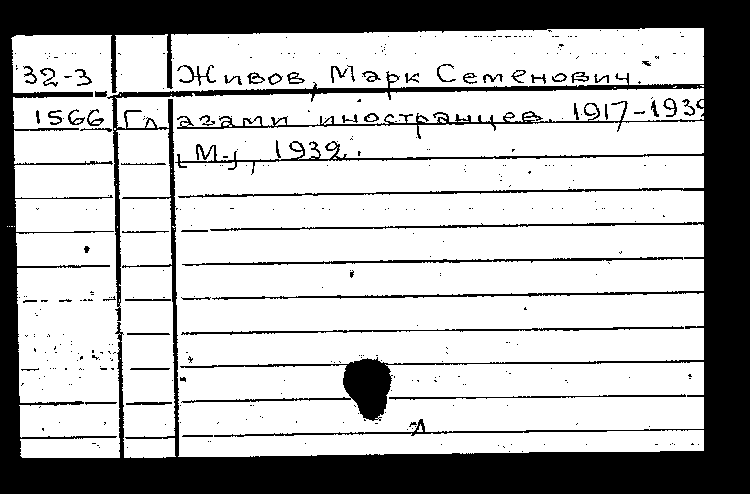 32-3 Живов, Марк Семенович.
1566 Глазами иностранцев. 1917-1939
[М.], 1939.
л